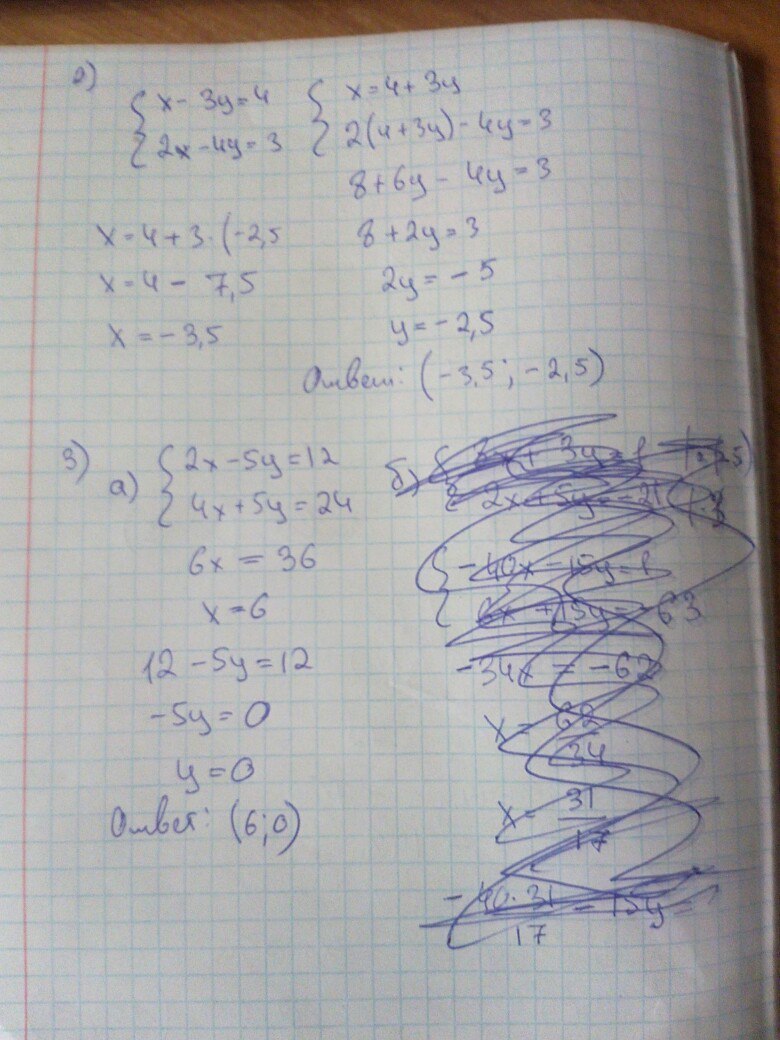 2)
{ x - 3y = 4 { x = 4 + 3y
{ 2x - 4y = 3 { 2(4 + 3y) - 4y = 3
8 + 6y - 4y = 3
x = 4 + 3 · (-2,5 8 + 2y = 3
x = 4 - 7,5 2y = -5
x = -3,5 y = -2,5
Ответ: (-3,5 ; -2,5)
3) а) { 2x - 5y = 12
{ 4x + 5y = 24
6x = 36
x = 6
12 - 5y = 12
-5y = 0
y = 0
Ответ: (6; 0)
б)
2x + 5y = -21
-34x = -62
x = 62/34
x = 31/17